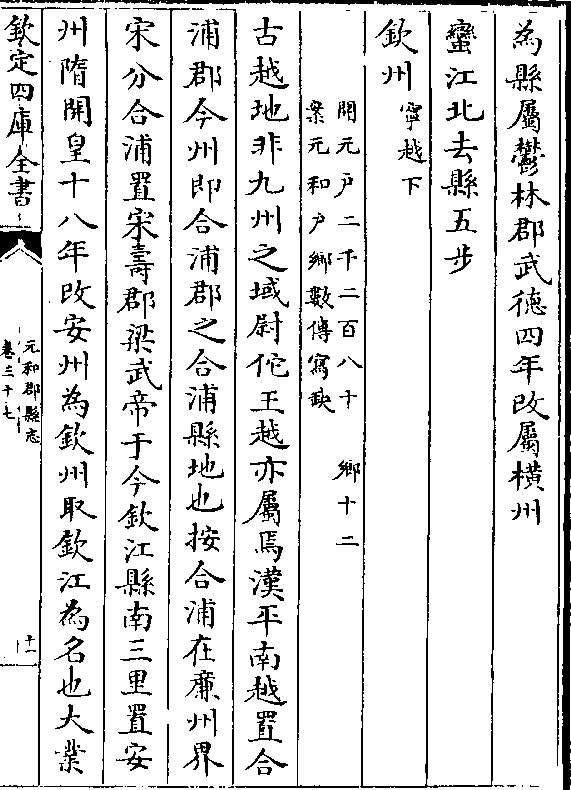 為縣屬鬱林郡武德四年改屬橫州
蠻江北去縣五步
欽州寧越下
開元戶二千二百八十　鄉十二
案元和戶鄉數傳寫缺
古越地非九州之域尉佗王越亦屬焉漢平南越置合
浦郡今州即合浦郡之合浦縣地也按合浦在廉州界
宋分合浦置宋壽郡梁武帝于今欽江縣南三里置安
州隋開皇十八年改安州為欽州取欽江為名也大業
欽定四庫全書
元和郡縣志
卷三十七
十一